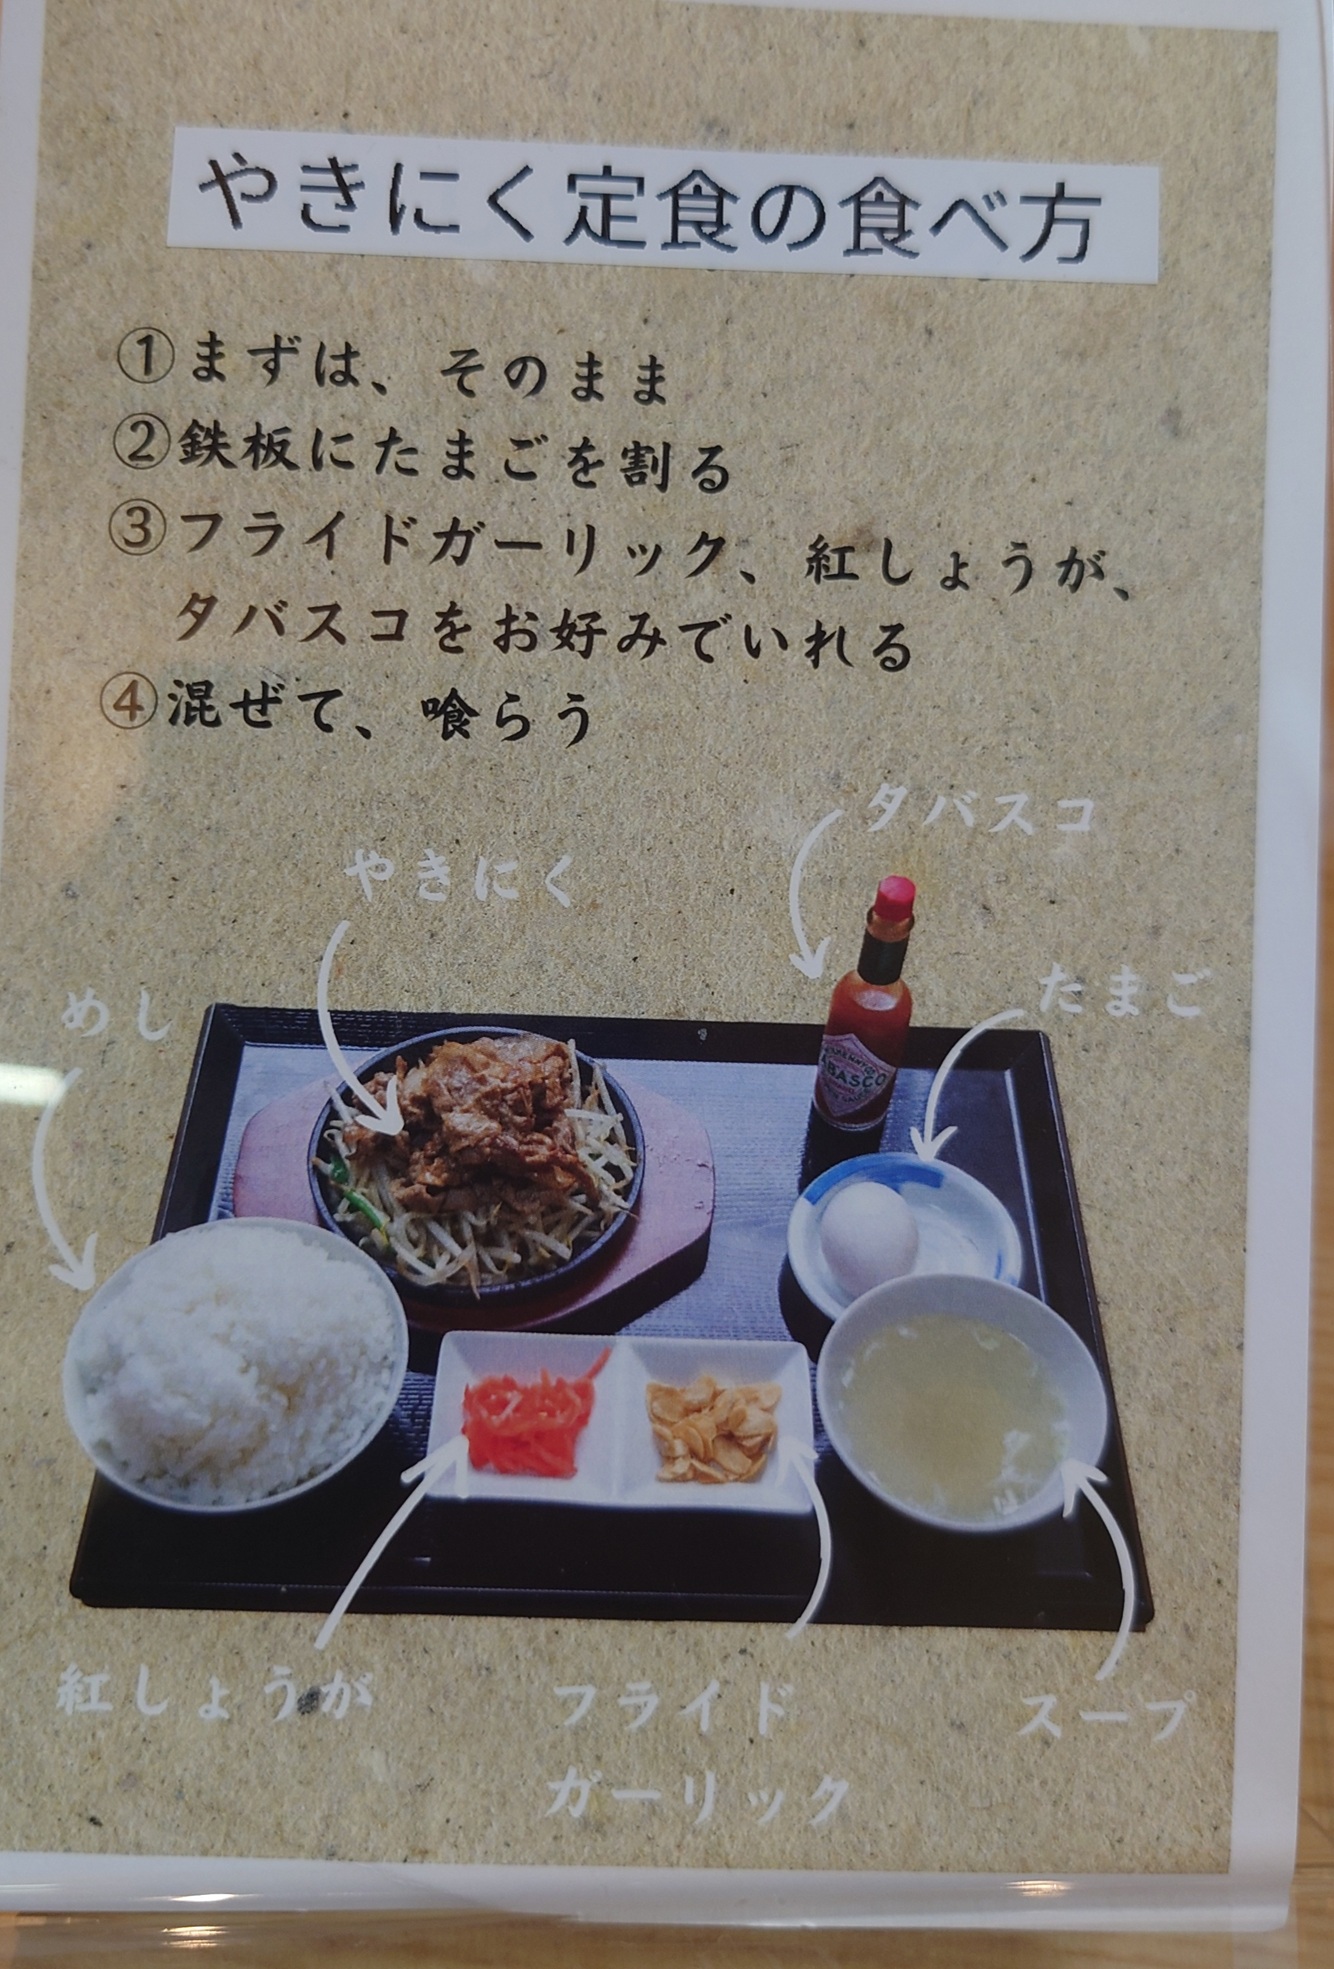 やきにく定食の食べ方
①まずは、そのまま
②鉄板にたまごを割る
③フライドガーリック、紅しょうが、
タバスコをお好みでいれる
④混ぜて、喰らう
タバスコ
やきにく
たまご
めし
TABASCO
紅しょうが
フライド
ガーリック
スープ